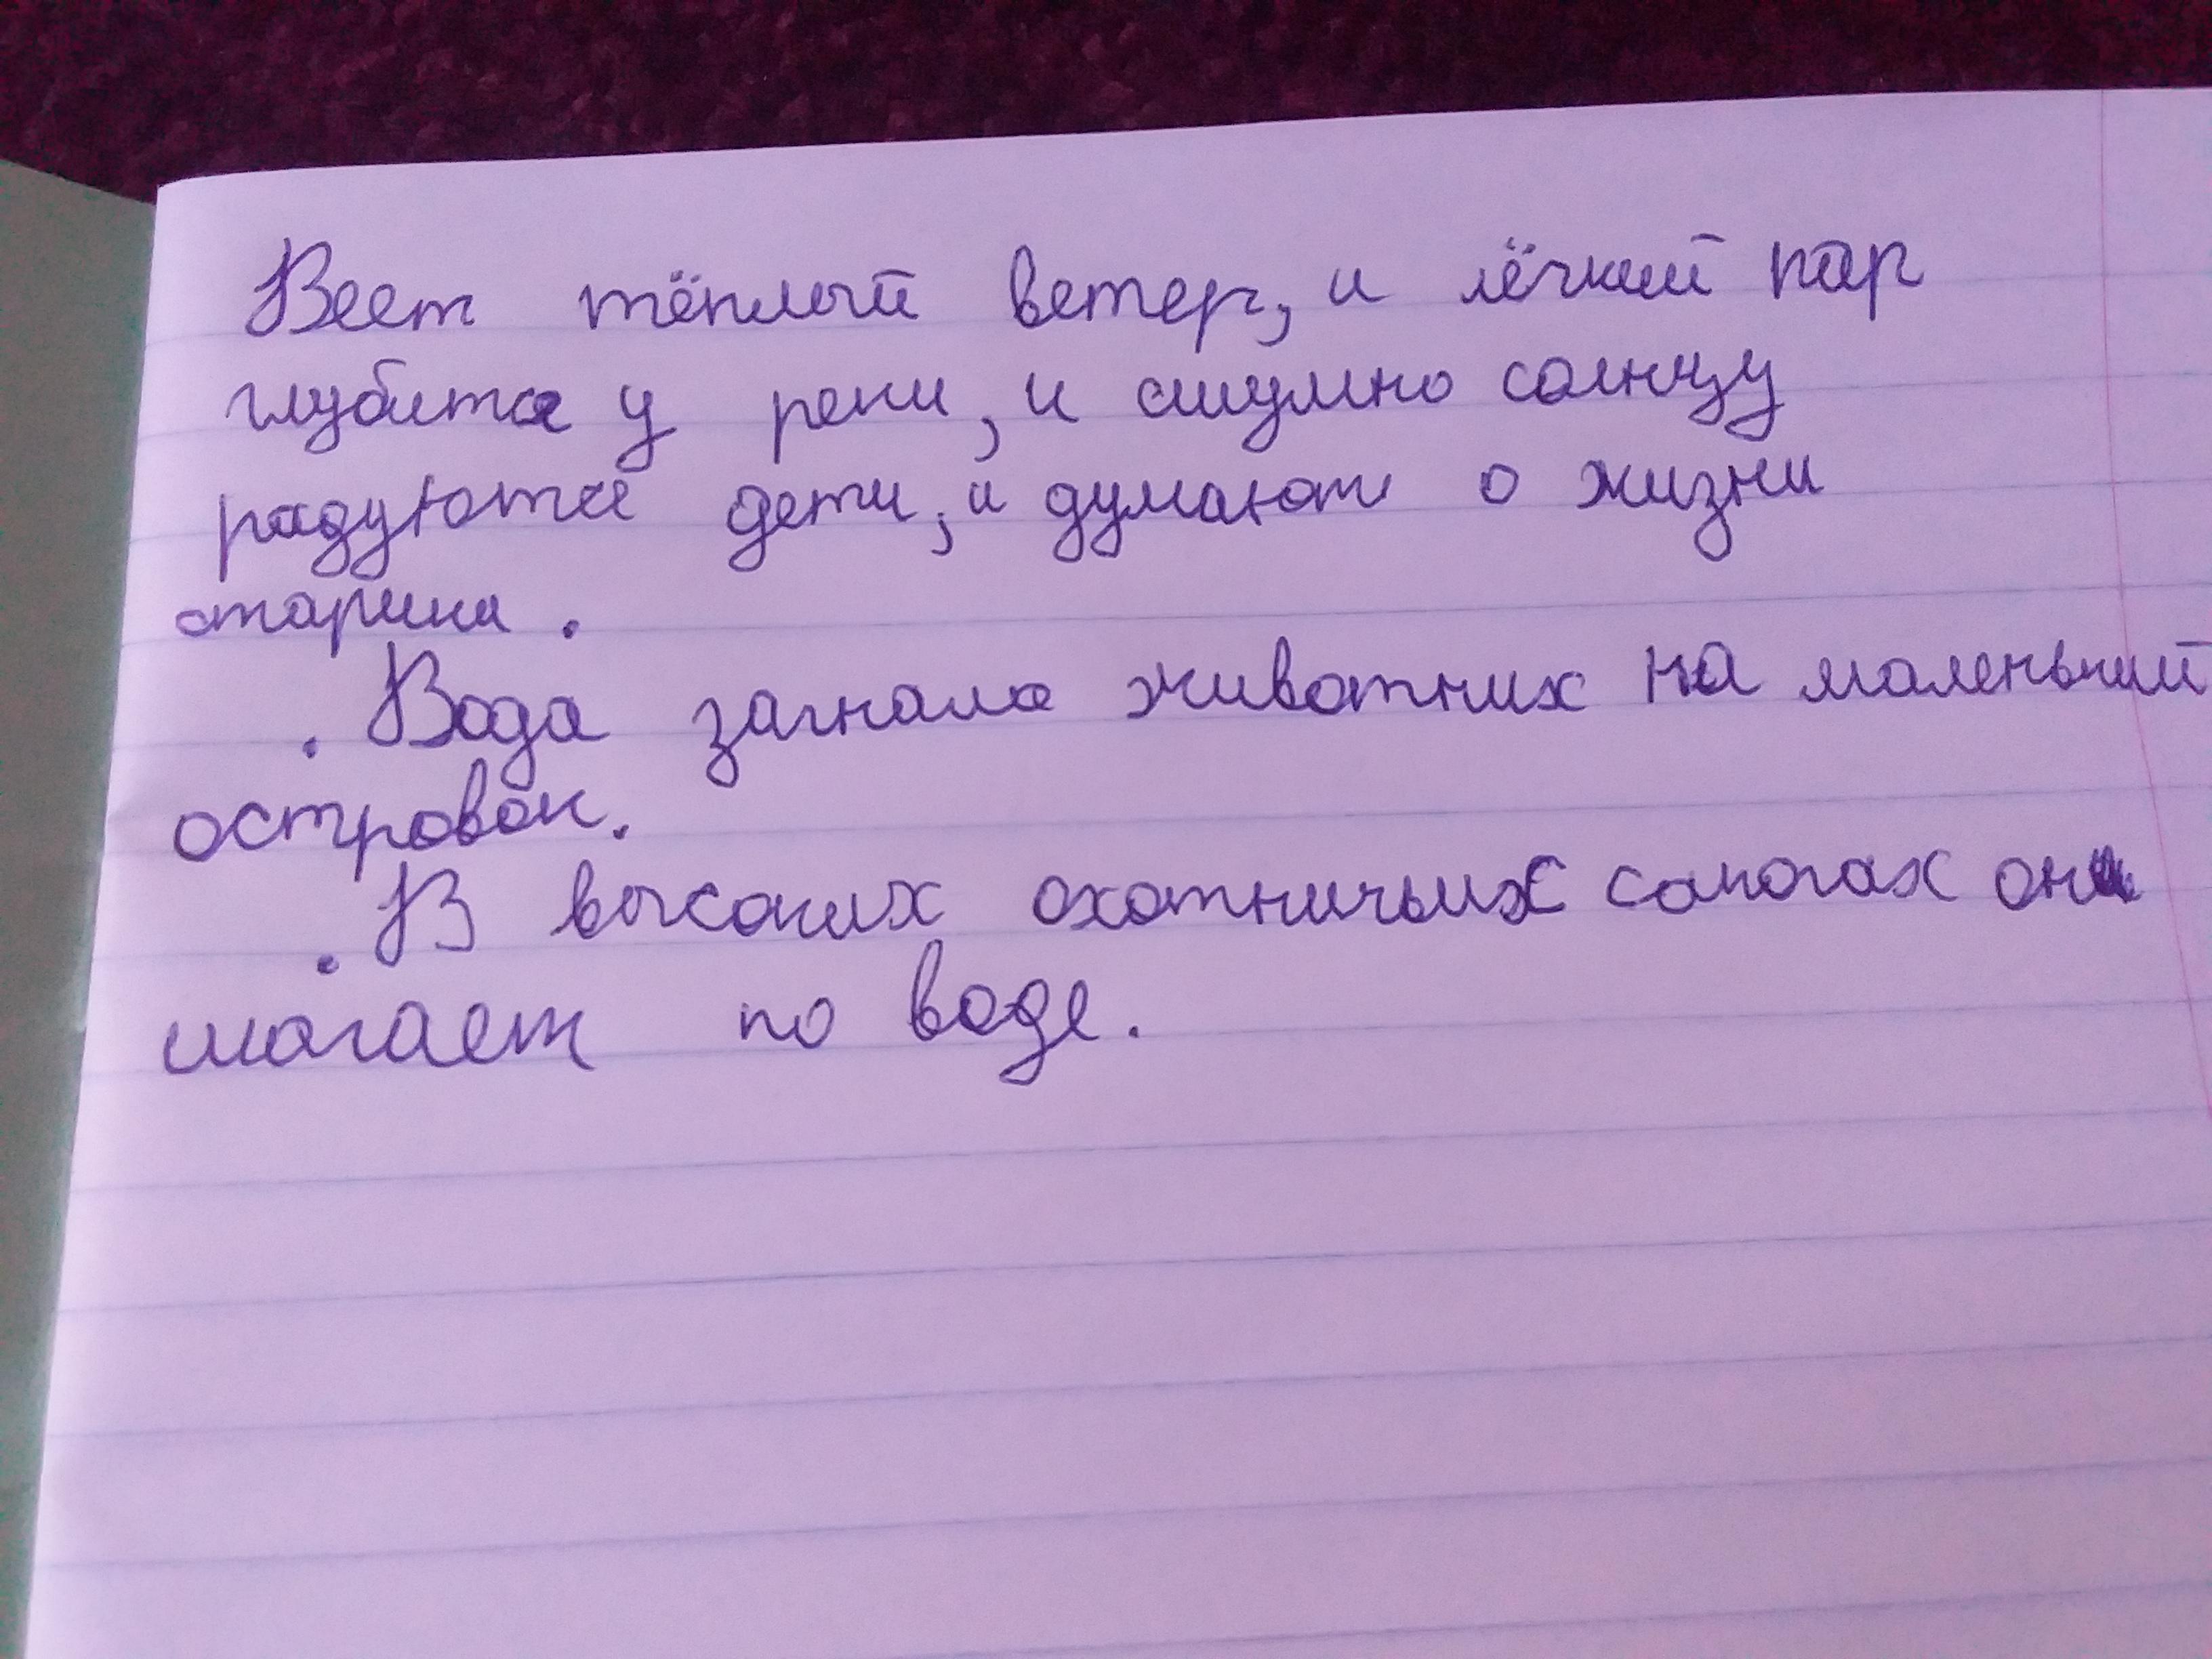 Веет тёплый ветер, и лёгкий пар
глубится у реки, и шумно солнцу
радуются дети, и думают о жизни
старики.
. Вода загнала животних на маленький
островок.
. В высоких охотничьих сапогах они
шагает по воде.